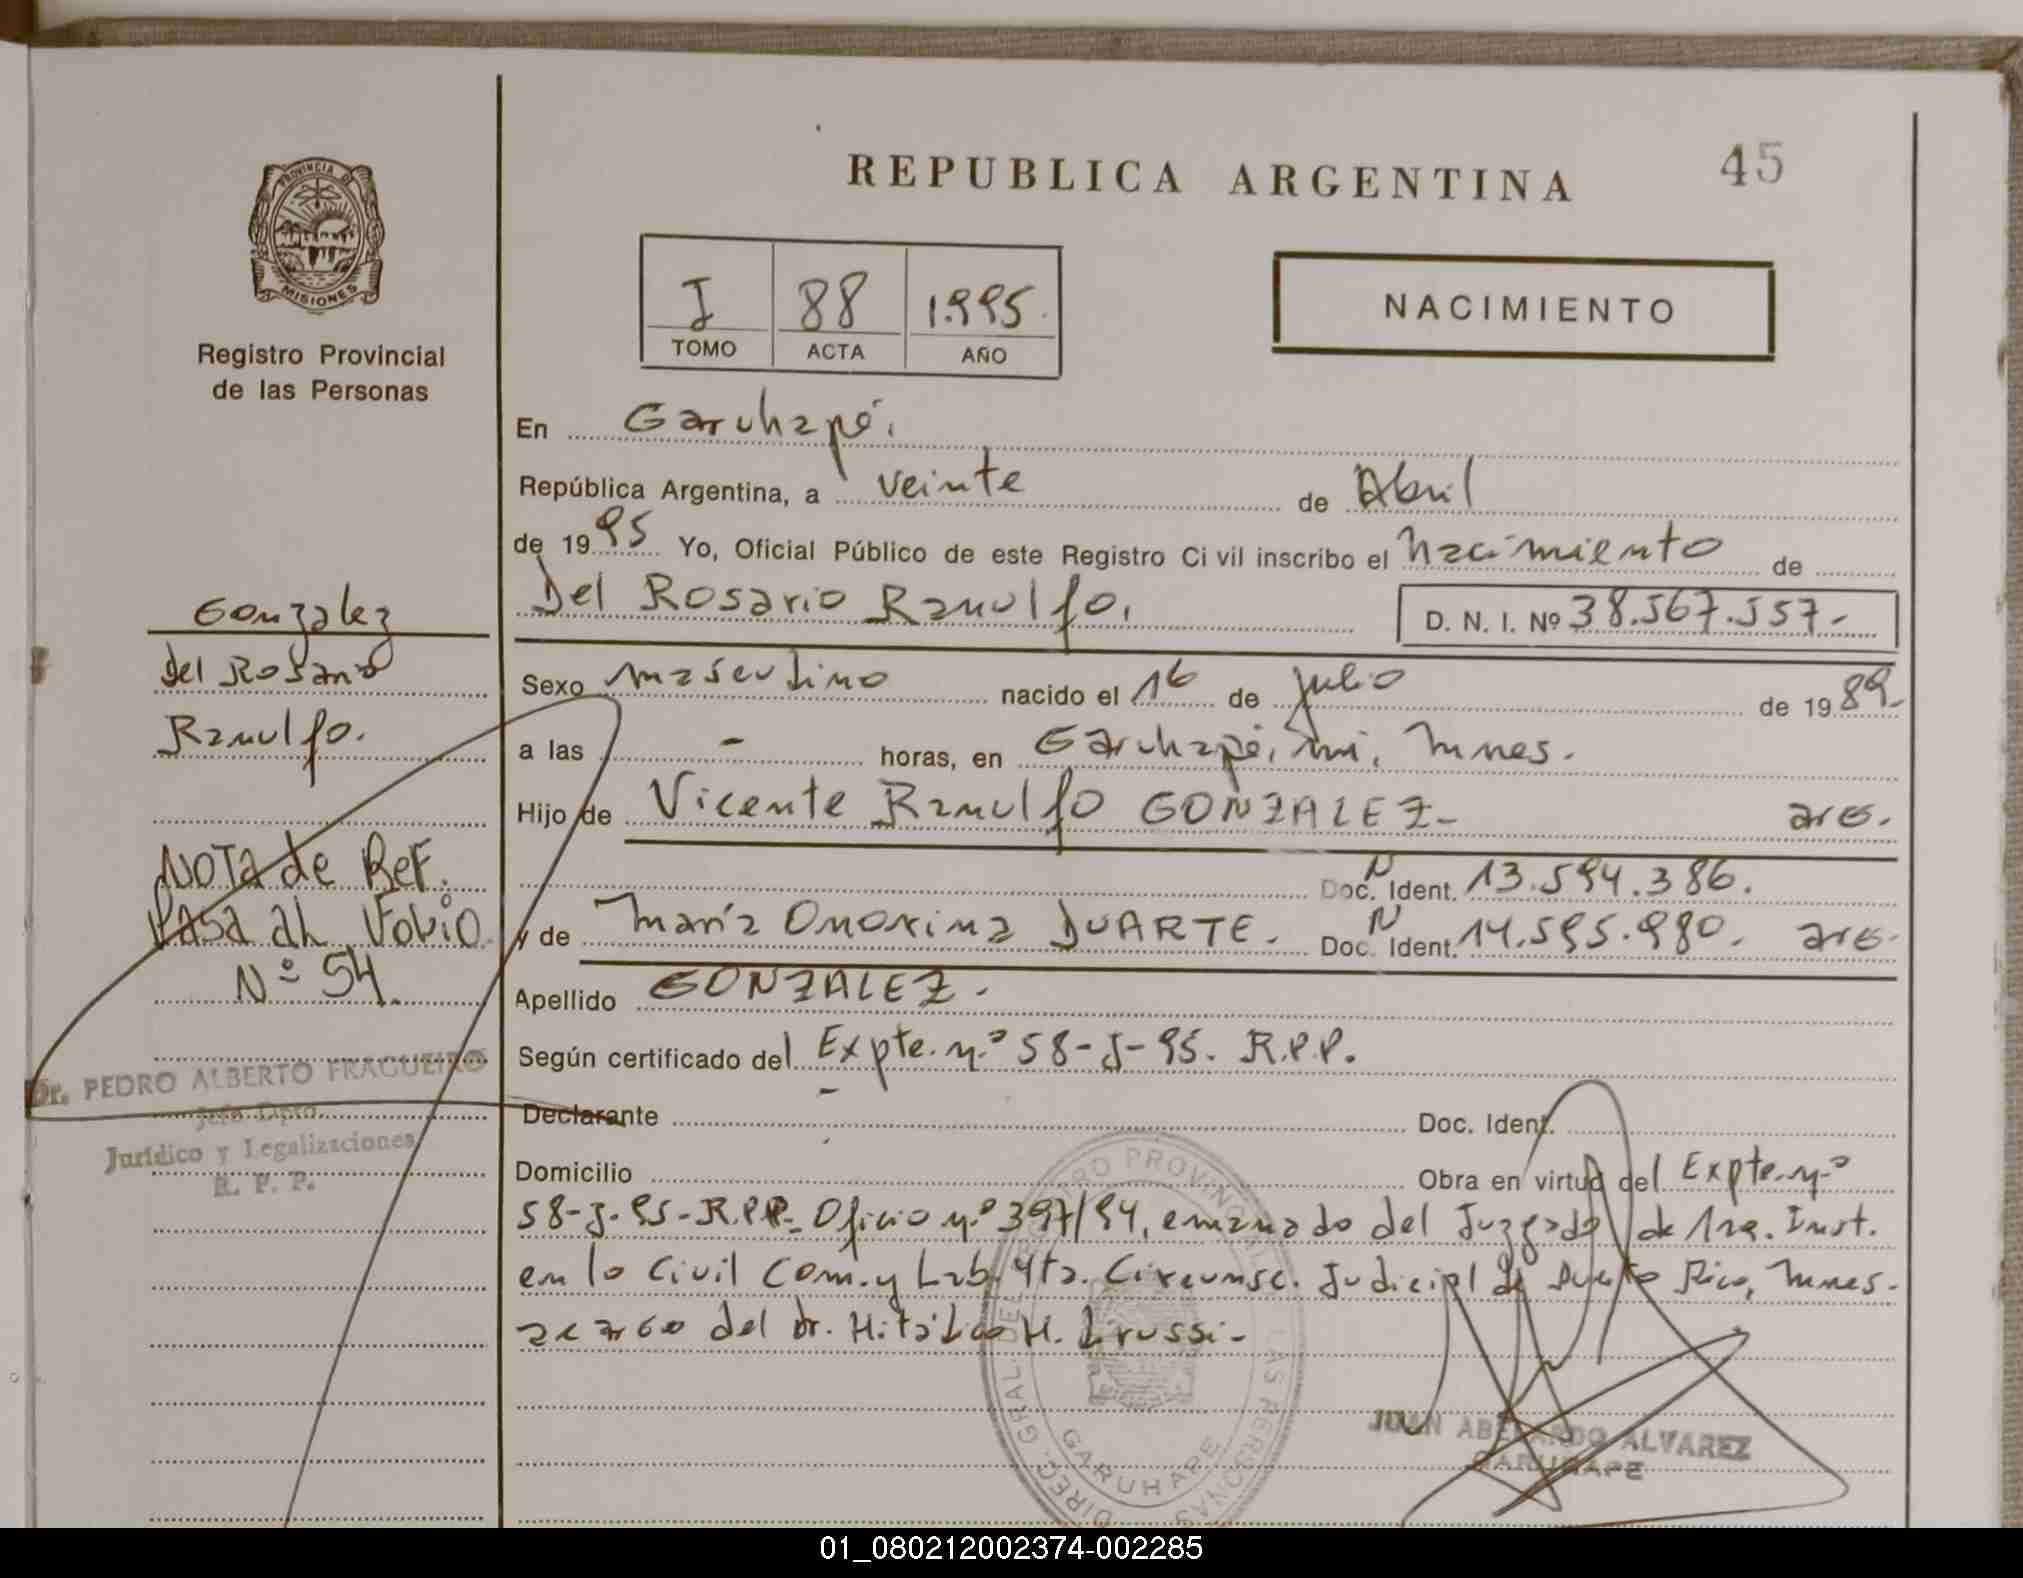 REPUBLICA ARGENTINA
45
PROVINCIA DE
MISIONES
Registro Provincial
de las Personas
I 88 1.995
TOMO ACTA AÑO
NACIMIENTO
En Garuhapé.
República Argentina, a veinte de Abril
de 1995 Yo, Oficial Público de este Registro Ci vil inscribo el nacimiento de
Del Rosario Ranulfo.
D. N. I. Nº 38.567.557.-
Gonzalez
Del Rosario
Ranulfo.
NOTA de REF.
Pasa al Folio
Nº 54.
Dr. PEDRO ALBERTO FRAGUEIRO
Jefe Dpto.
Jurídico y Legalizaciones
R. P. P.
Sexo masculino nacido el 16 de Julio de 1989.-
a las - horas, en Garuhapé, mi, Mnes.
Hijo de Vicente Ranulfo GONZALEZ- arg.
Doc. Ident. N 13.594.386.
y de María Onorina DUARTE. Doc. Ident. N 14.595.980. arg.
Apellido GONZALEZ.-
Según certificado del Expte. n.º 58-J-95. R.P.P.
Declarante - Doc. Ident.
Domicilio Obra en virtud del Expte. nº
58-J-95-R.P.P.- Oficio n.º 397/94, emanado del Juzgado de 1ra. Inst.
en lo Civil Com. y Lab. 4ta. Circunsc. Judicial de Puerto Rico, Mnes.
a cargo del Dr. H. Lrussi-
DIREC. GRAL. DEL REGISTRO PROVINCIAL LAS PERSONAS
GARUHAPE
JUAN ABELARDO ALVAREZ
GARUHAPE
01_080212002374-002285